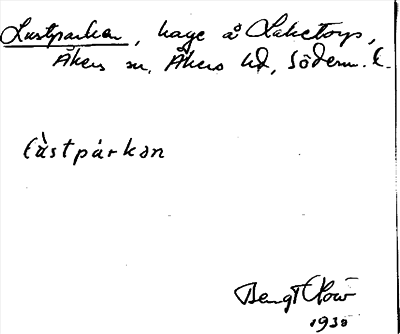 Lustparken, hage å Laketorp,
Åkers sn, Åkers hd, Söderm. l.
lùstpárkən
Bengt
1930